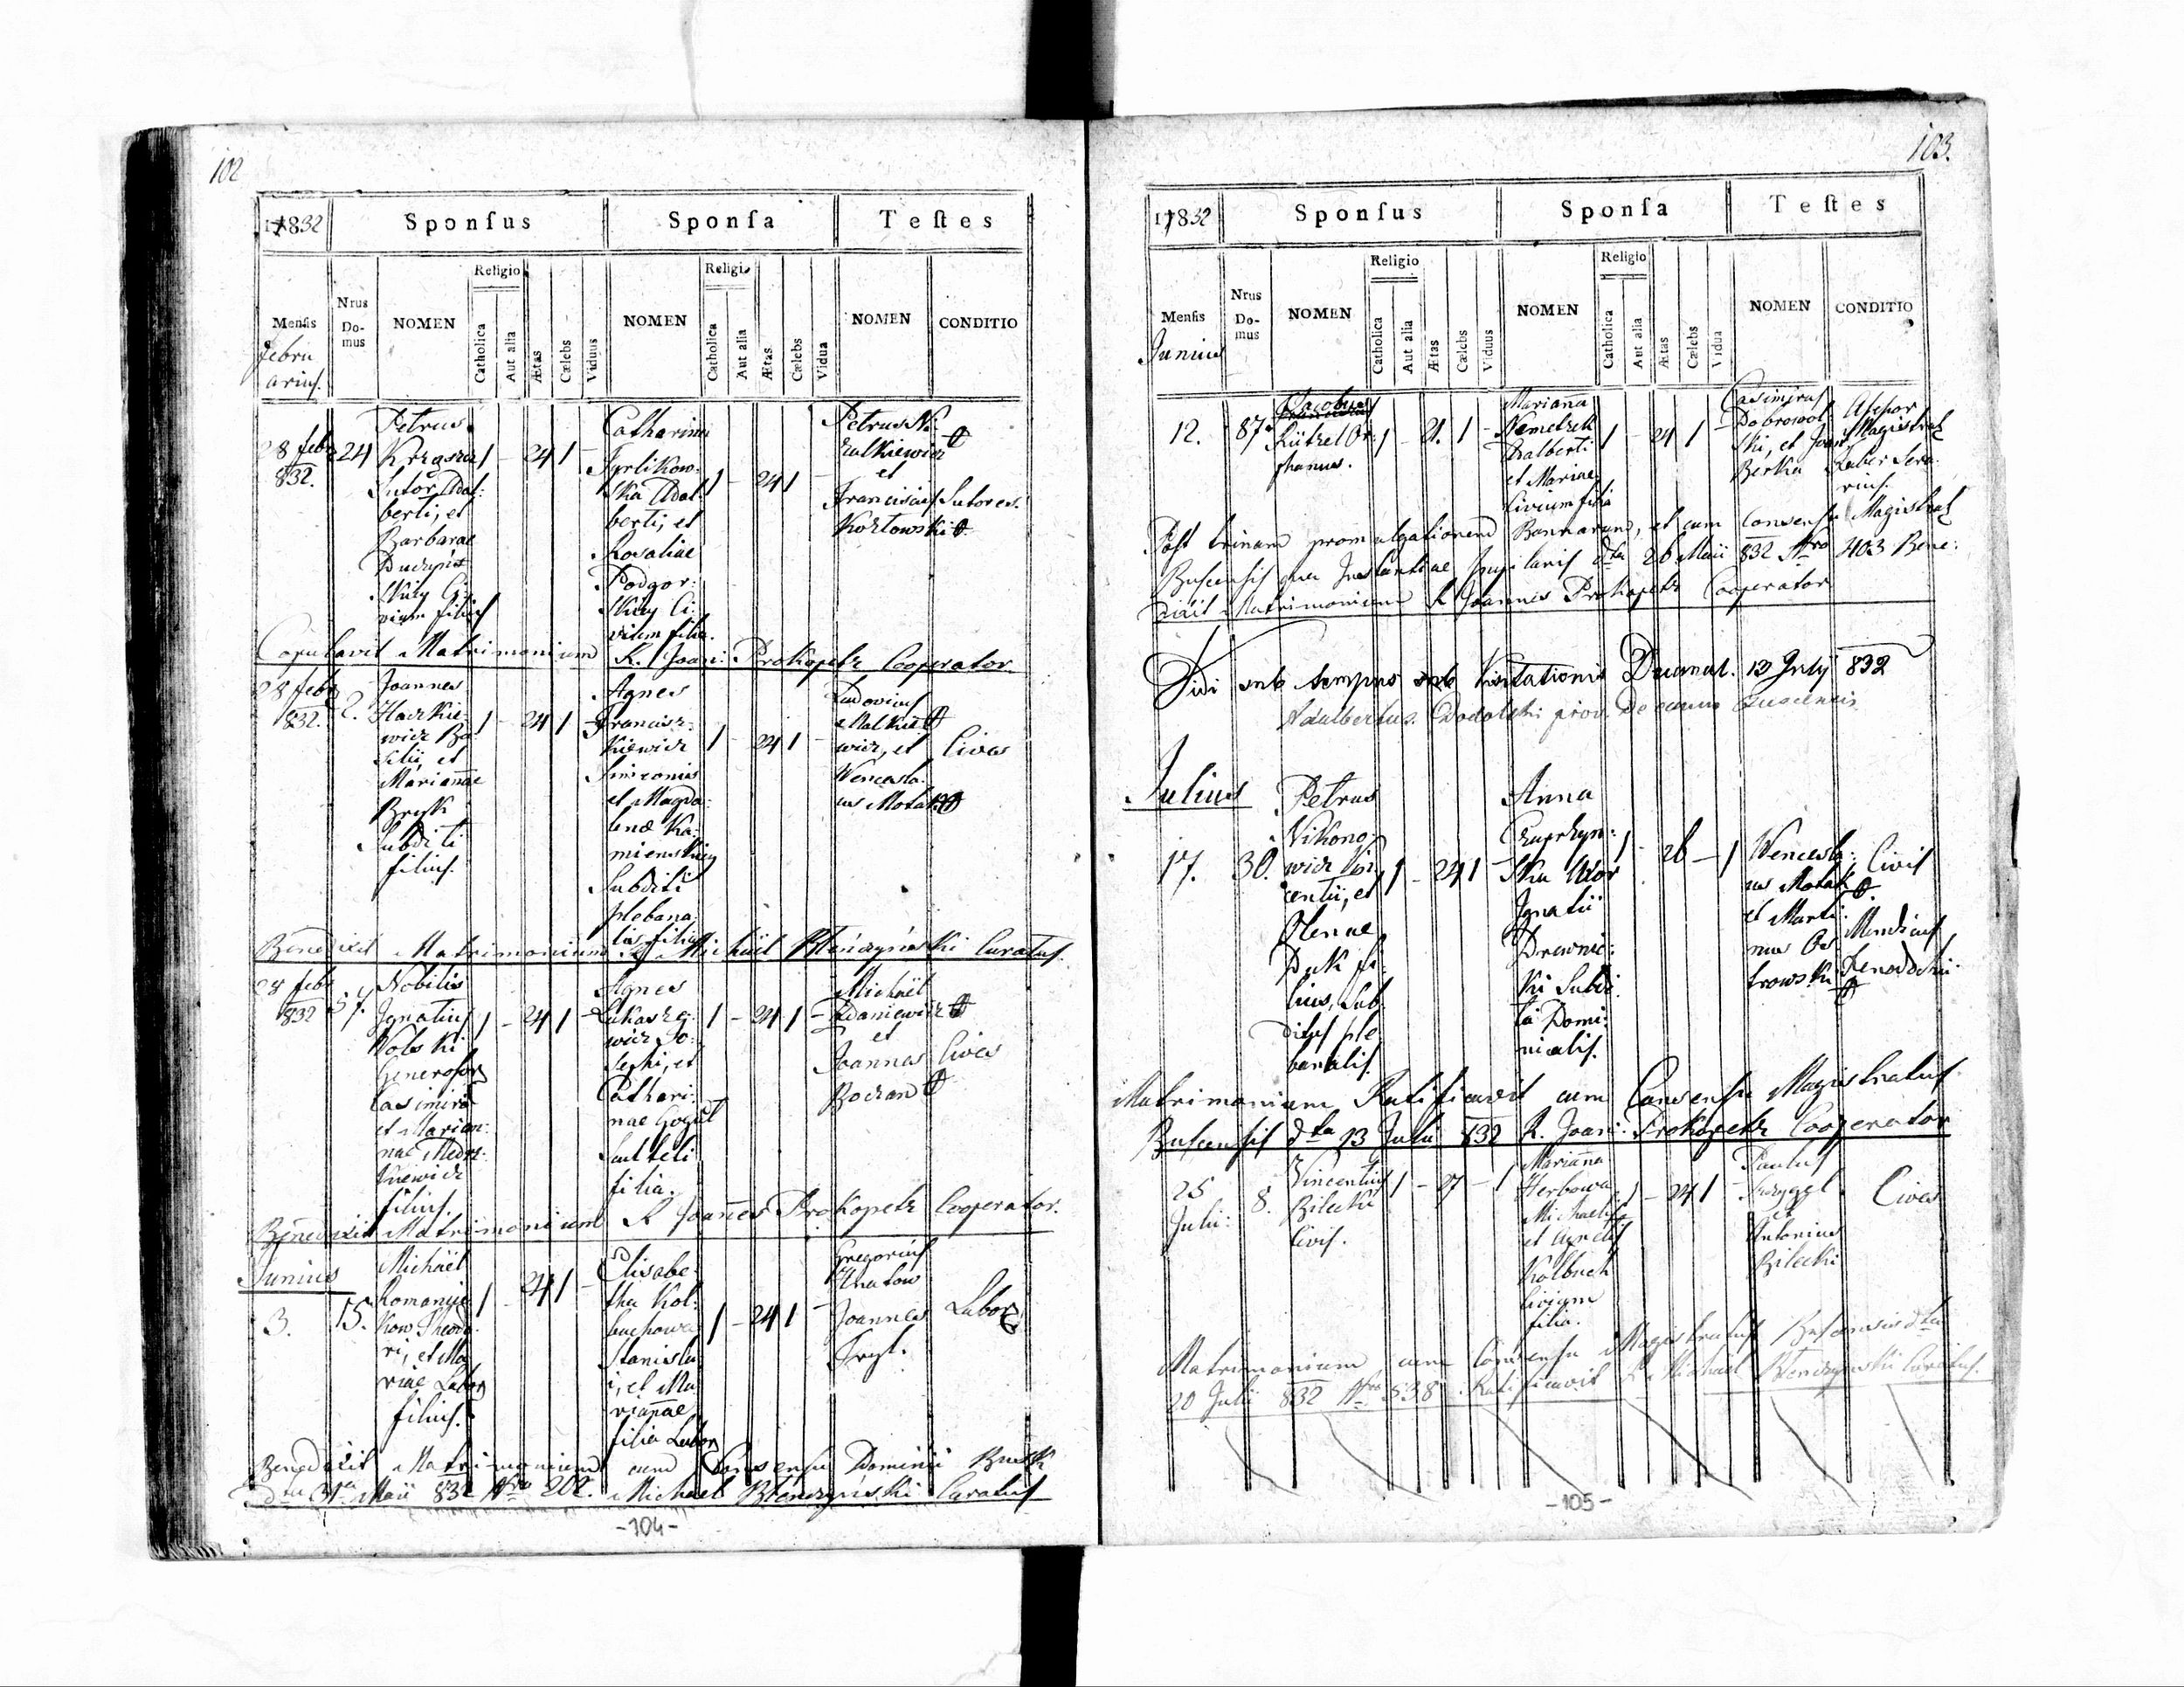 102
17832
Sponſus
Sponſa
Teſtes
Menſis
Nrus Do-mus
NOMEN
Religio
Catholica
Aut alia
Ætas
Cælebs
Viduus
NOMEN
Religio
Catholica
Aut alia
Ætas
Cælebs
Vidua
NOMEN
CONDITIO
Febru
arius.
28 febr
832.
24
Petrus
Sutor Adal:
berti, et
Barbarae
Ci:
vium filius
1 - 24 1 -
Catharina
ska Adal
berti, et
Rosaliae
Podgor:
skich Ci:
vium filia.
1 - 24 1 -
Petrus Ni
et
Franciscus
Kozłowski
Sutores.
Copulavit Matrimonium R. Joan: Prokopetz Cooperator
28 febr
832.
2.
Joannes
Hackie:
wicz Ba:
silii, et
Mariannae
Bryk
Subditi
filius.
1 - 24 1 -
Agnes
Francisz:
kiewicz
Simeonis
et Magda:
lenæ Ka:
mienskich
Subditi
plebana
lis filia
1 - 24 1 -
Ludovicus
Malkie
wicz, et
Wencesla:
us Motak
Cives
Benedixit Matrimonium R. Michaël Błonczyński Curatus.
28 febr
832
57.
Nobilis
Ignatius
Wolski
Generosor
Casimiri
et Marian:
nae Miedz:
kiewicz
filius.
1 - 24 1 -
Agnes
Łukasze:
wicz Jo:
sephi, et
Cathari:
nae Gogul
Sculteti
filia.
1 - 24 1 -
Michaël
Zdaniewicz
et
Joannes
Bocian
Cives
Benedixit Matrimonium R Joannes Prokopetz Cooperator.
Junius
3.
15.
Michaël
Romanij
kow Theodo:
ri, et Ma
riae Labor
filius.
1 - 24 1 -
Elisabe
tha Kol:
buchowa
Stanisla
i, et Ma
riannae
filia Labor
1 - 24 1 -
Gregorius
Hnatow
Joannes
Labor
Benedixit Matrimonium cum Consensu Dominii Busk
dto 31a Maii 832 Nro 202. Michaël Błonczyński Curatus
-104-
103.
17832
Sponſus
Sponſa
Teſtes
Menſis
Nrus Do-mus
NOMEN
Religio
Catholica
Aut alia
Ætas
Cælebs
Viduus
NOMEN
Religio
Catholica
Aut alia
Ætas
Cælebs
Vidua
NOMEN
CONDITIO
Junius
12.
87
Jacobus
Kützel Or:
phanus.
1 - 21. 1 -
Mariana
Nemetzek
Adalberti
et Mariae
Civium filia
1 - 24 1 -
Casimirus
Dobrowol
ski, et Joan:
Berka
Assessor
Magistrat
Faber Sera:
rius.
Post trinam promulgationem Bannorum, et cum Consensu Magistrat
Buscensis qua Instantiae pupilaris dto 26 Maii 832 Nro 403 Bene:
dixit Matrimonium R Joannes Prokopetz Cooperator
Vidi sub tempus Visitationis Decanal. 12 July 832
Adalbertus prov. Decanus Buscensis
Julius
17.
30.
Petrus
Nikono
wicz Vin
centii, et
Helenae
Duk fi:
lius, Sub
ditus ple
banalis
1 - 24 1 -
Anna
Czuprzyn:
ska Uxor
Ignatii
Drewnic:
ki Subdi
ta Domi:
nicalis.
1 - 26 - 1
Wencesla:
us Motak
et Marti:
nus Os
trowski
Civis
Mendicus
Xenodochii
Matrimonium Ratificavit cum Consensu Magistratus
Buscensis dto 13 Julii 832 R. Joan: Prokopetz Cooperator
25
Julii:
8.
Vincentius
Bilecki
Civis.
1 - 27 - 1
Marianna
Herbowa
Michaelis
et Agnetis
Kolbuch
Civium
filia.
1 - 24 1
Paulus
et
Antonius
Bilecki
Cives
Matrimonium cum Consensu Magistratus Buscensis dto
20 Julii 832 Nro 538 Ratificavit R Michaël Błonczyński Curatus.
-105-